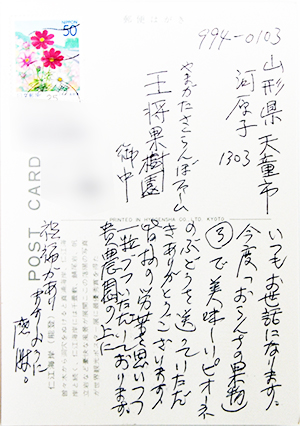 NIPPON
50
郵便はがき
994-0103
山形県天童市
河原子
1303
やまがたさくらんぼファーム
王将果樹園
御中
PRINTED IN KYOTO
POST CARD
いつもお世話になります。
今度「おらんちの果物」
③で美味しいピオーネ
のぶどうを送っていただ
きありがとうございます
皆様の労苦を思いつつ
一粒づついただいております。
貴農園の上に
祝福があり
ますように
感謝。
仁江海岸(能登)